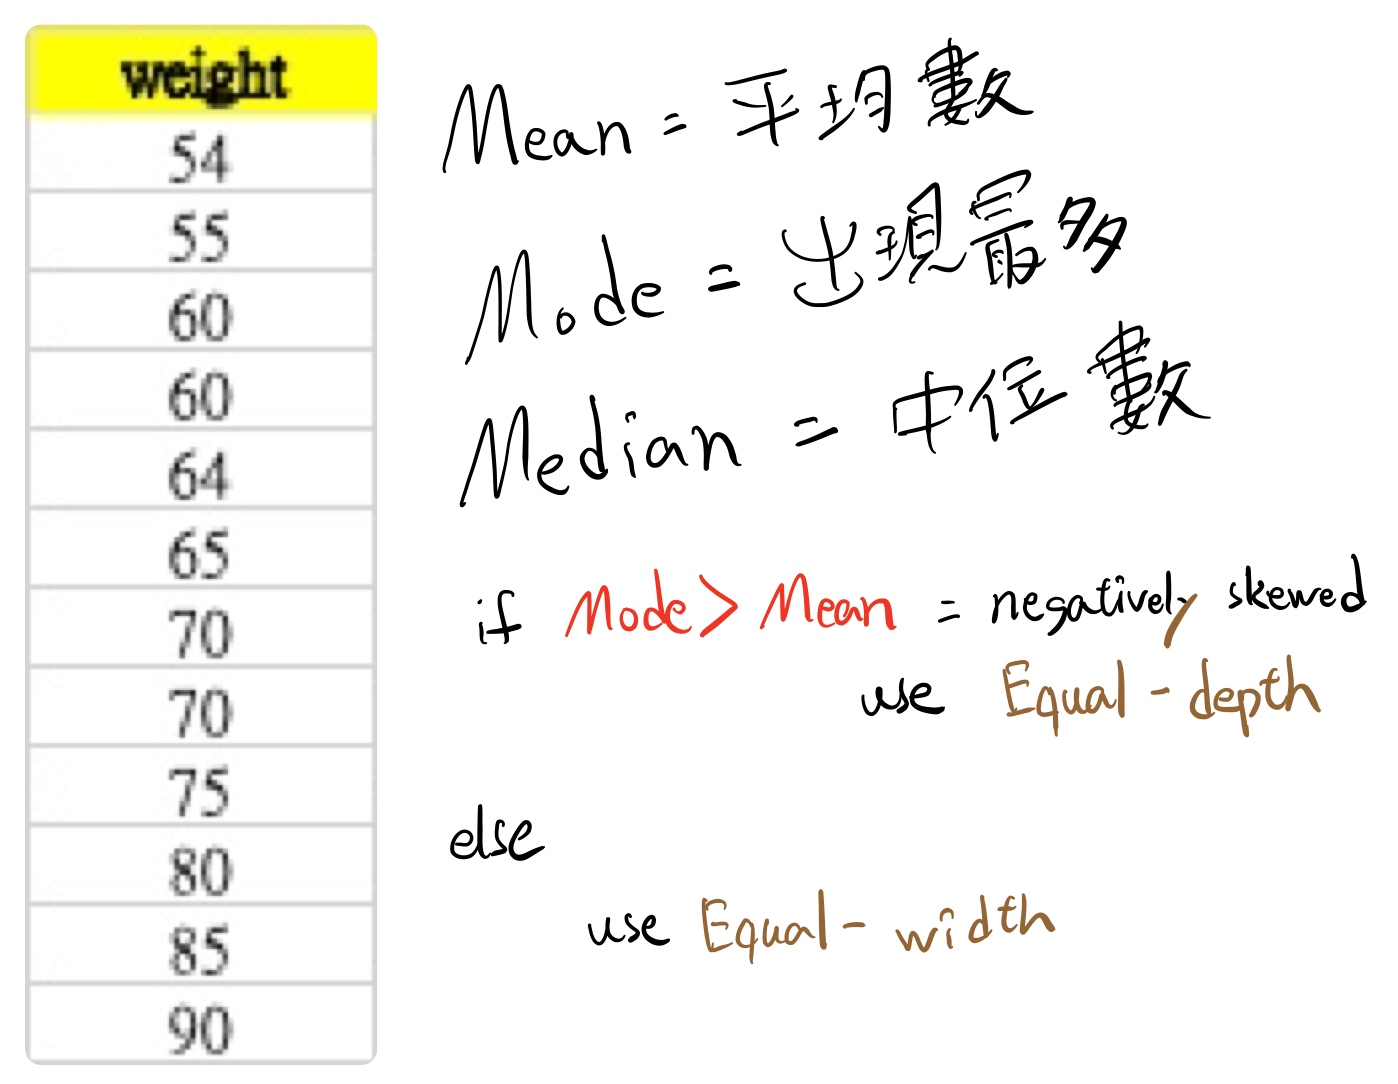 weight
54
55
60
60
64
65
70
70
75
80
85
90
Mean = 平均數
Mode = 出現最多
Median = 中位數
if Mode > Mean = negatively skewed
use Equal-depth
else
use Equal-width